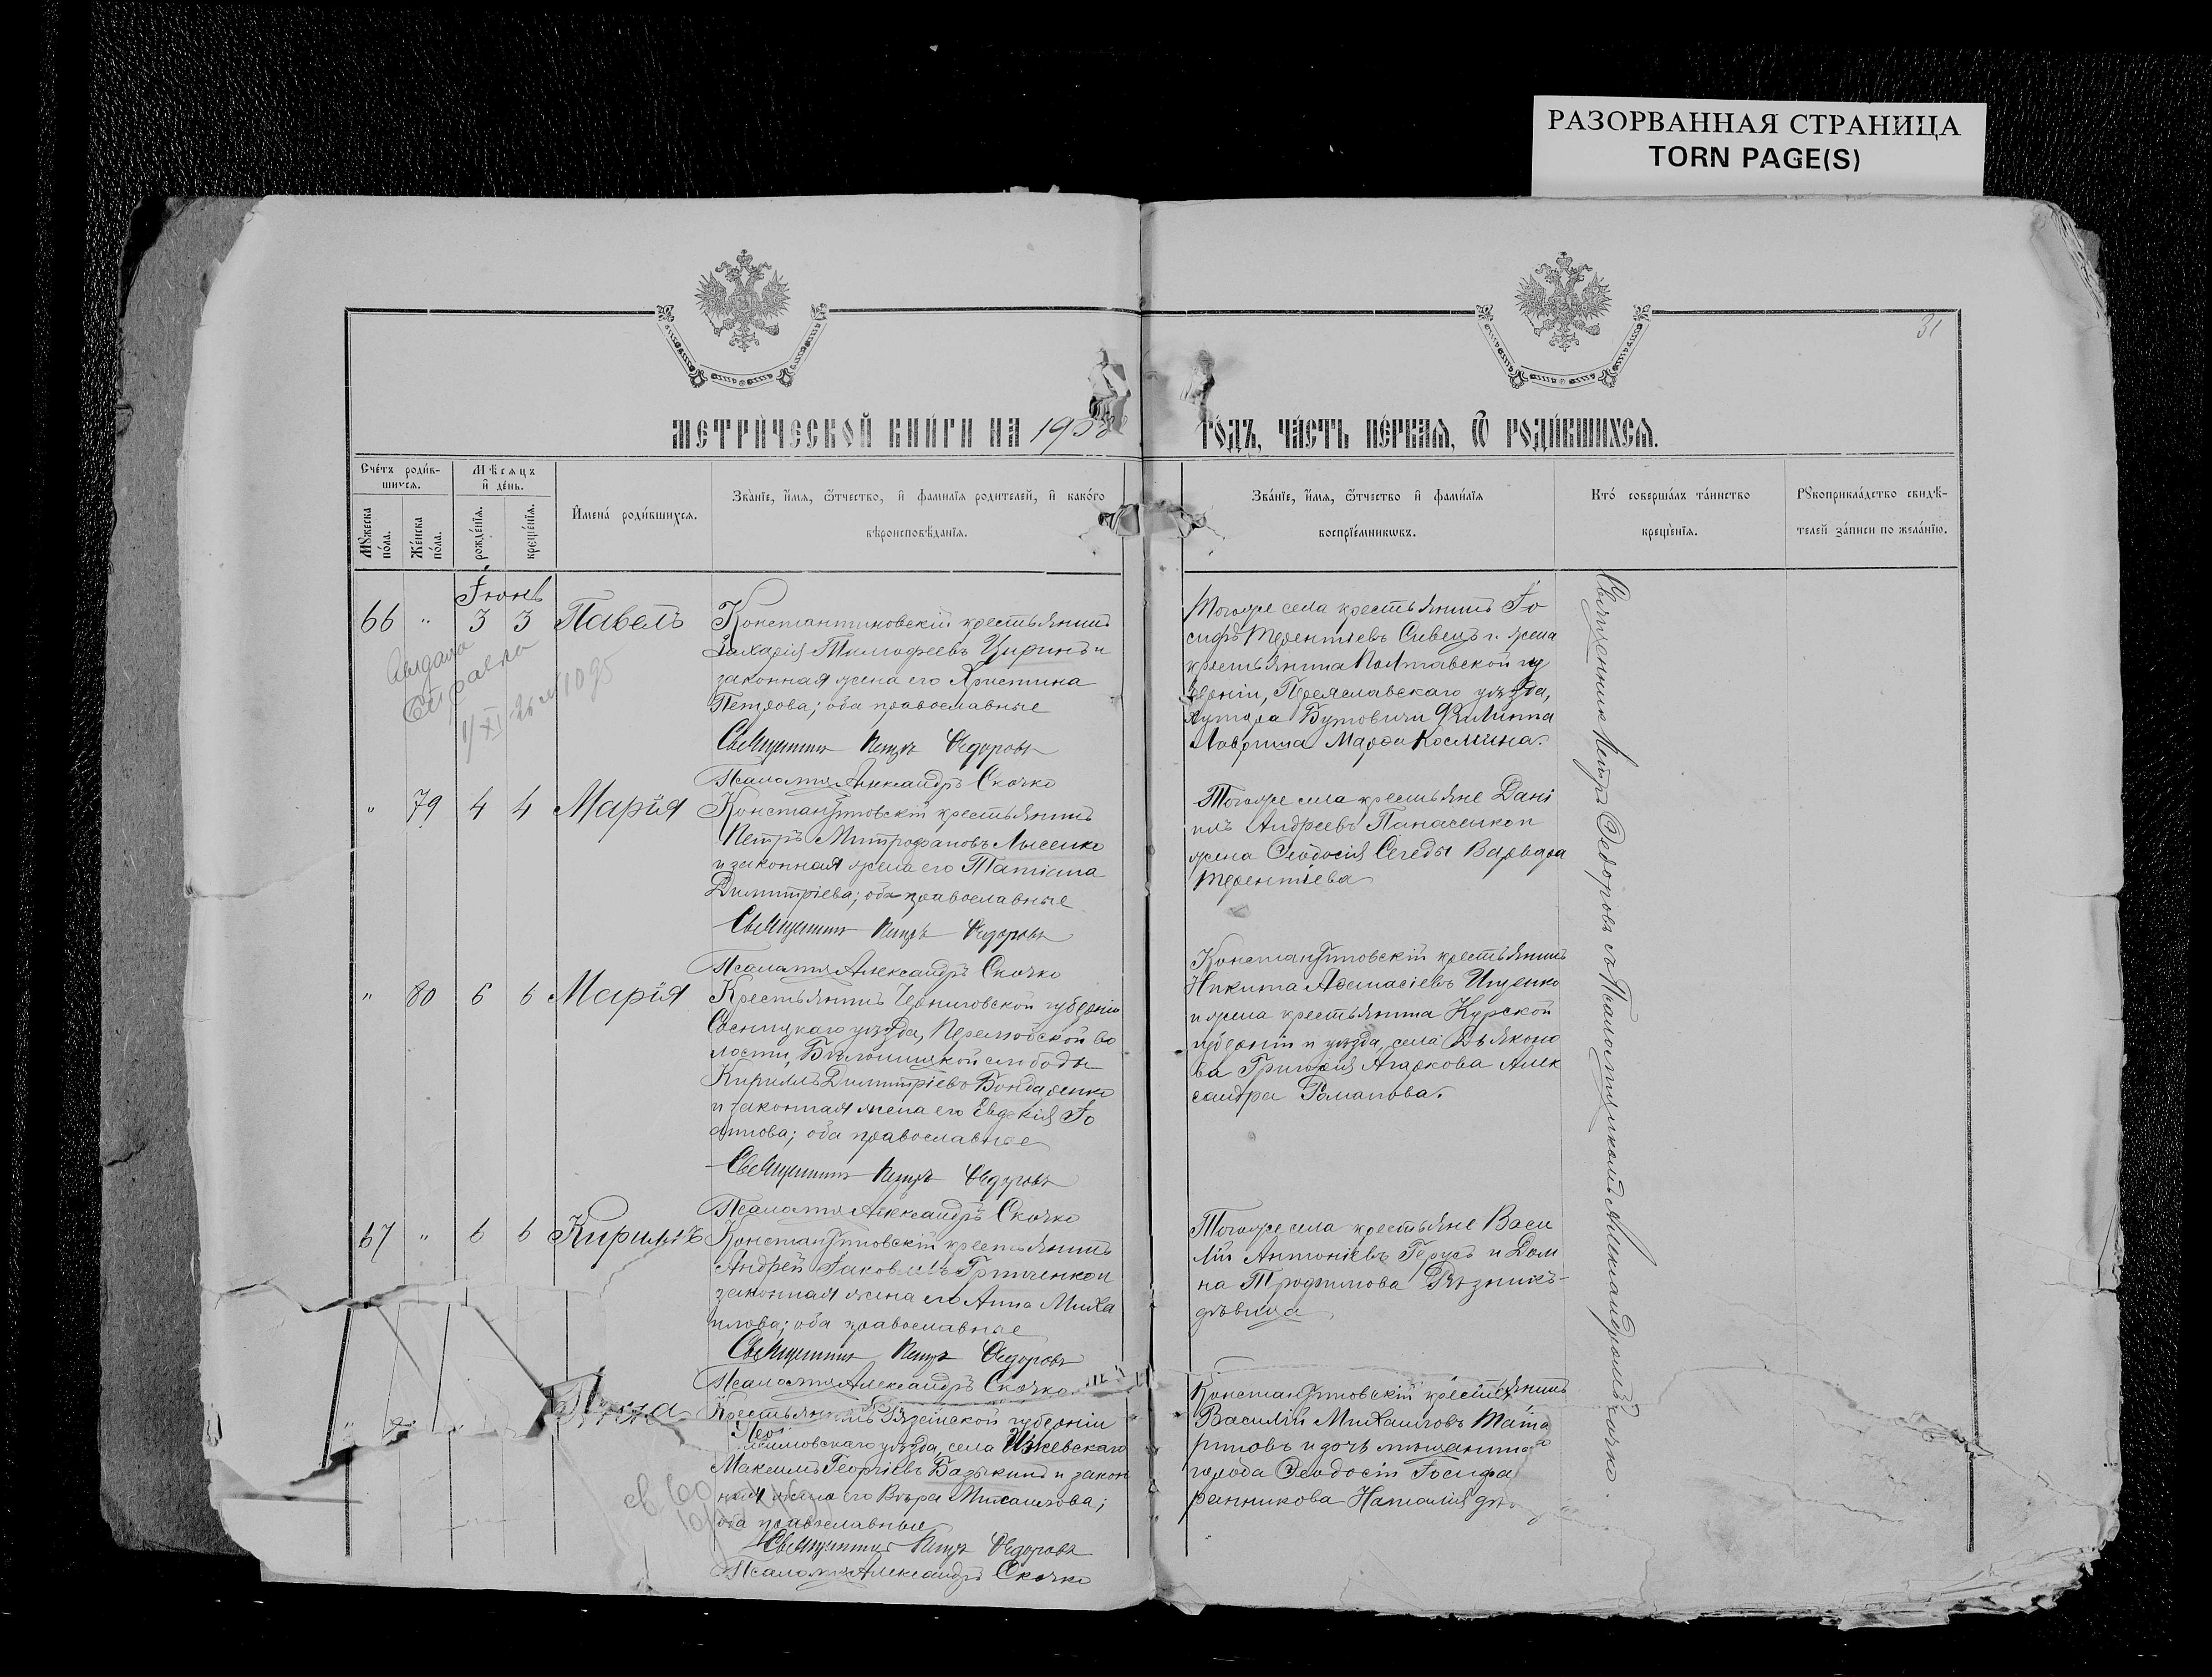 РАЗОРВАННАЯ СТРАНИЦА
TORN PAGE(S)
31
МЕТРИЧЕСКОЙ КНИГИ НА 1908
ГОДЪ, ЧАСТЬ ПЕРВАЯ, Ѿ РОДИВШИХСЯ.
Счетъ родив-
шихся.
Мѣсяцъ
и день.
Мужеска
пола.
Женска
пола.
рожденія.
крещенія.
Имена родившихся.
Званіе, имя, ѿтчество, и фамилія родителей, и какого
вѣроисповѣданія.
Званіе, имя, ѿтчество и фамилія
воспріемниковъ.
Кто совершалъ таинство
крещенія.
Рукоприкладство свидѣ-
телей записи по желанію.
Іюнь
66 " 3 3 Павелъ
Константиновскій крестьянинъ
Захарія Тимофеевъ Циринъ и
законная жена его Христина
Петрова; оба православные
Священникъ Петръ Ѳедоровъ
Псаломщ Александръ Скочко
Тогоже села крестьянинъ Іо
сифъ Терентіевъ Сивецъ и жена
крестьянина Полтавской гу
берніи, Переяславскаго уѣзда,
хутора Бутовичи Филиппа
Лаврина Марѳа Космина.
Справка
" 79 4 4 Марія
Константиновскій крестьянинъ
Петръ Митрофановъ Лысенко
и законная жена его Татіана
Димитріева; оба православные
Священникъ Петръ Ѳедоровъ
Псаломщ Александръ Скочко
Тогоже села крестьяне Дані
илъ Андреевъ Панасенко и
жена Ѳеодосія Сегеды Варвара
Терентіева
" 80 6 6 Марія
Крестьянинъ Черниговской губерніи
Сосницкаго уѣзда, Перелюбской во
лости, слободы
Кириллъ Димитріевъ Бондаренко
и законная жена его Евдокія Іо
Священникъ Петръ Ѳедоровъ
Псаломщ Александръ Скочко
Константиновскій крестьянинъ
Никита Аѳанасіевъ Ищенко
и жена крестьянина Курской
губерніи и уѣзда, села Дьяконо
ва Григорія Агаркова Алек
сандра Романова.
67 " 6 6 Кириллъ
Константиновскій крестьянинъ
Андрей Іаковлевъ Гринченко и
законная жена его Анна Миха
илова; оба православные
Священникъ Петръ Ѳедоровъ
Псаломщ Александръ Скочко
Тогоже села крестьяне Васи
лій Антоніевъ Герусъ и Дом
на Трофимова Рѣзникъ-
дѣвица
Крестьянинъ Рязанской губерніи
уѣзда, села Ижевскаго
Максимъ Георгіевъ Базыкинъ и закон
ная жена его Вѣра Михаилова;
оба православные
Священникъ Петръ Ѳедоровъ
Псаломщ Александръ Скочко
Константиновскій крестьянинъ
Василій Михаиловъ Тата
риновъ и дочь мѣщанина
города Ѳеодосіи Іосифа
Наталія дѣ
Священникъ Петръ Ѳедоровъ съ Псаломщикомъ Александромъ Скочко.